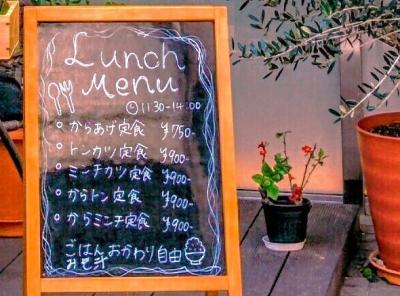 Lunch
Menu
11:30-14:00
からあげ定食 ¥750-
トンカツ定食 ¥900-
ミンチカツ定食 ¥900-
からトン定食 ¥900-
からミンチ定食 ¥900-
ごはん おかわり自由
お老汁